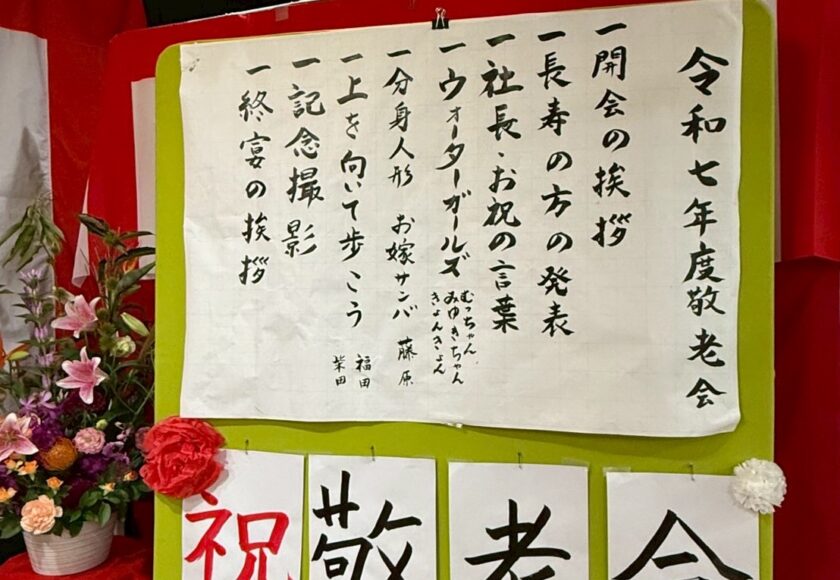 令和七年度敬老会
一開会の挨拶
一長寿の方の発表
一社長、お祝の言葉
一ウォーターガールズ
むっちゃん
みゆきちゃん
きょんきょん
一分身人形 お嫁サンバ 藤原
一上を向いて歩こう
福田
柴田
一記念撮影
一終宴の挨拶
祝敬老会